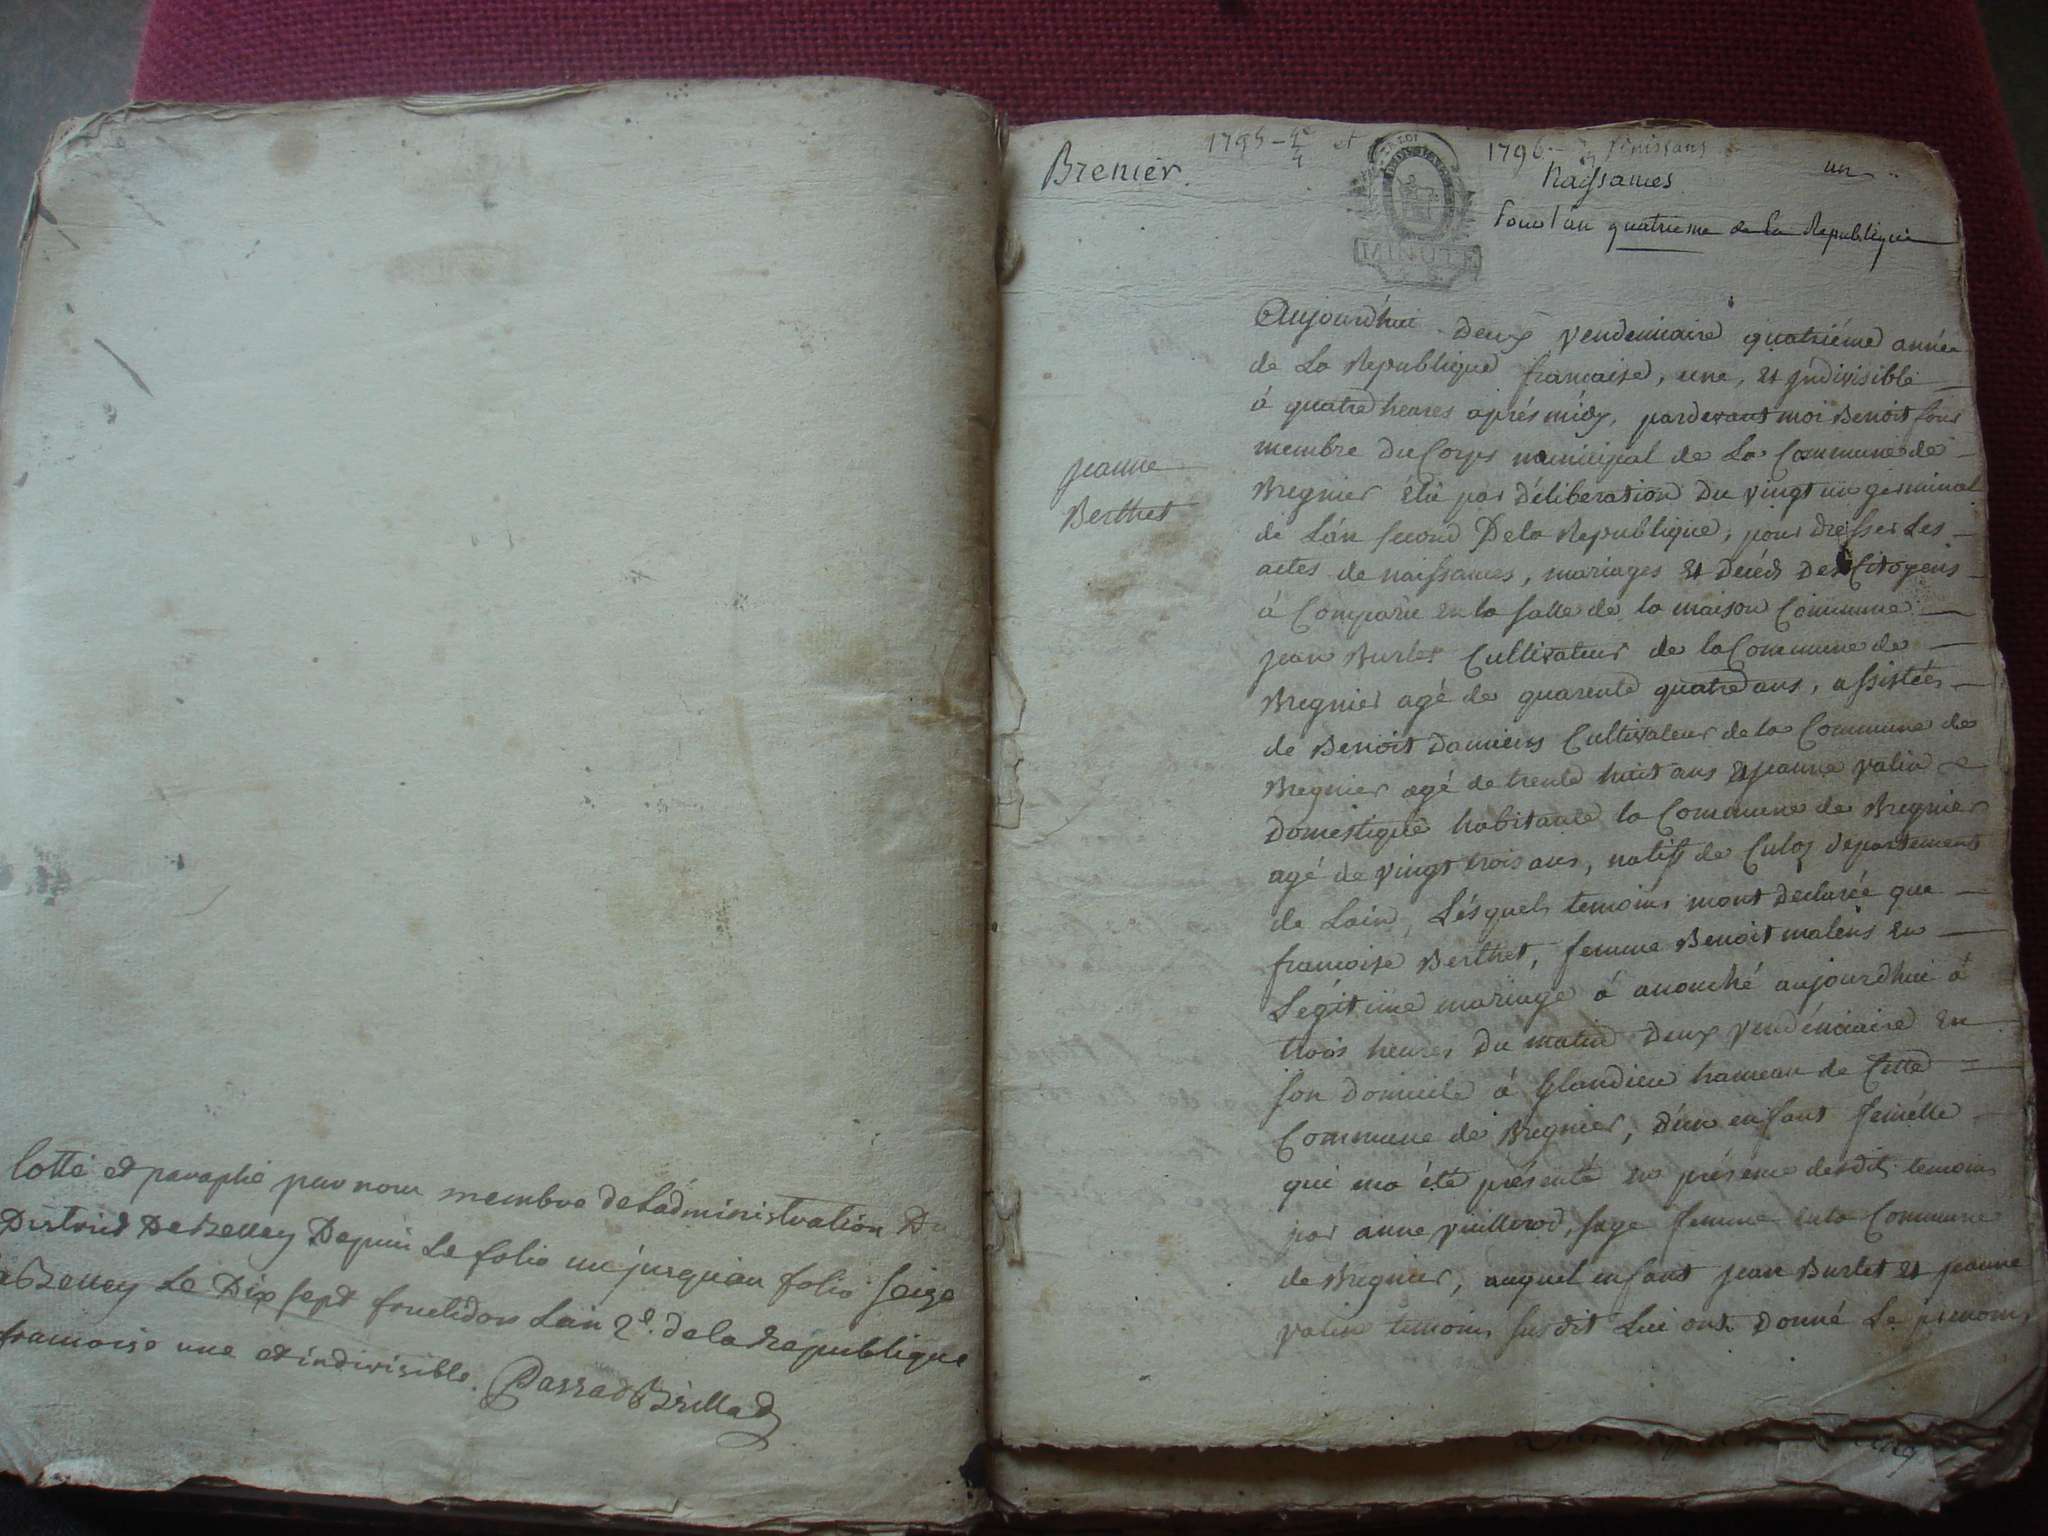 Cotté et paraphé par nous membre de l'administration Du
District De Belley Depuis Le folio un jusqu'au folio seize
a Belley Le Dix sept fructidor L'an 2e. de la République
francoise une et indivisible.
Brenier.
1795 - et
1796 -
finissant
un
Naissances
Pour l'an quatrieme de La Republique
LA LOI
MINUTE
Jeanne
Berthet
Aujourd'hui Deux vendemiaire quatriéme année
de La Republique francaise, une, et Jndivisible
á quatre heures aprés midy, pardevant moi Benoit
membre Du Corps municipal de La Commune de
Bregnier élu par Déliberation Du vingt un germinal
de L'an second De la Republique, pour Dresser Les
actes de naissances, mariages et Décés Des Citoyens
á Comparu en la salle de la maison Commune
jean Burlet Cultivateur de la Commune de
Bregnier agé de quarente quatre ans, assistées
de Benoit Damiens Cultivateur de la Commune de
Bregnier agé de trente huit ans et jeanne valin
Domestique habitante la Commune de Bregnier
agé de vingt trois ans, natif de Culoz Departement
de Lain, Lésquels temoins mont Declarée que
francoise Berthet, femme Benoit en
Légitime mariage á acouché aujourdhui á
trois heures Du matin Deux vendémiaire en
son Domicile á Glandieu hameau de Cette
Commune de Bregnier, D'un enfant femélle
qui ma été présenté en présence desdit temoins
par anne vuillerod, sage femme en la Commune
de Bregnier, auquel enfant jean Burlet et jeanne
valin temoins susdit Lui ont Donné Le prenom,